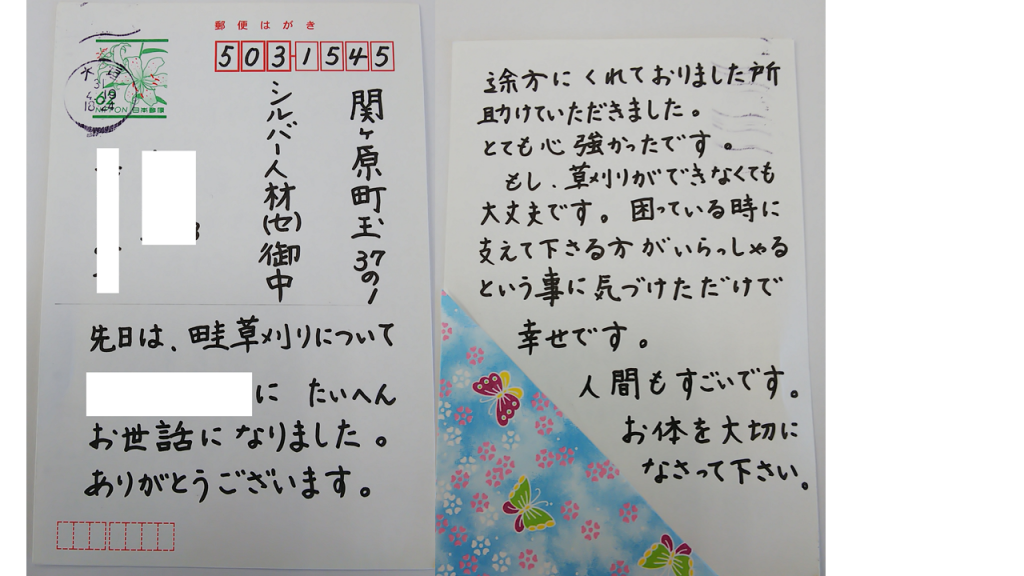 郵便はがき
503-1545
関ヶ原町玉37の1
シルバー人材(セ)御中
NIPPON 日本郵便
先日は、畦草刈りについて
に たいへん
お世話になりました。
ありがとうございます。
途方にくれておりました所
助けていただきました。
とても心強かったです。
もし、草刈りができなくても
大丈夫です。困っている時に
支えて下さる方がいらっしゃる
という事に気づけただけで
幸せです。
人間もすごいです。
お体を大切に
なさって下さい。